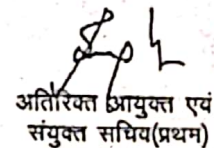 अतिरिक्त आयुक्त एवं
संयुक्त सचिव(प्रथम)